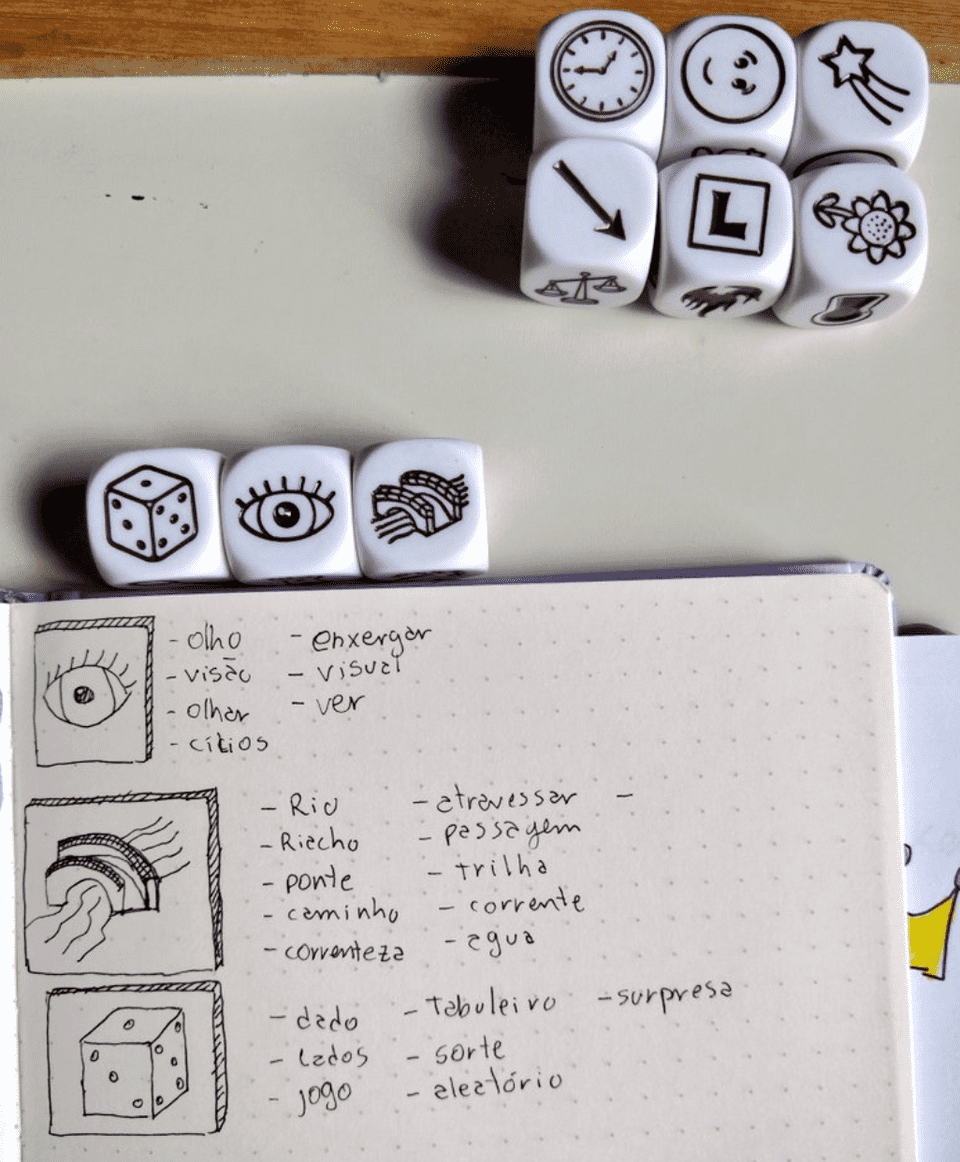 L
- olho - enxergar
- visão - visual
- olhar - ver
- cílios
- Rio - atravessar -
- Riacho - passagem
- ponte - trilha
- caminho - corrente
- correnteza - agua
- dado - Tabuleiro - surpresa
- lados - sorte
- jogo - aleatório